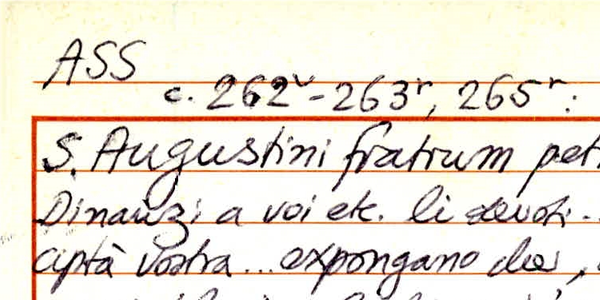 ASS
c. 262v-263r, 265r:
S. Augustini fratrum pet
Dinanzi a voi etc. li devoti..
ciptà vostra... expongano che,